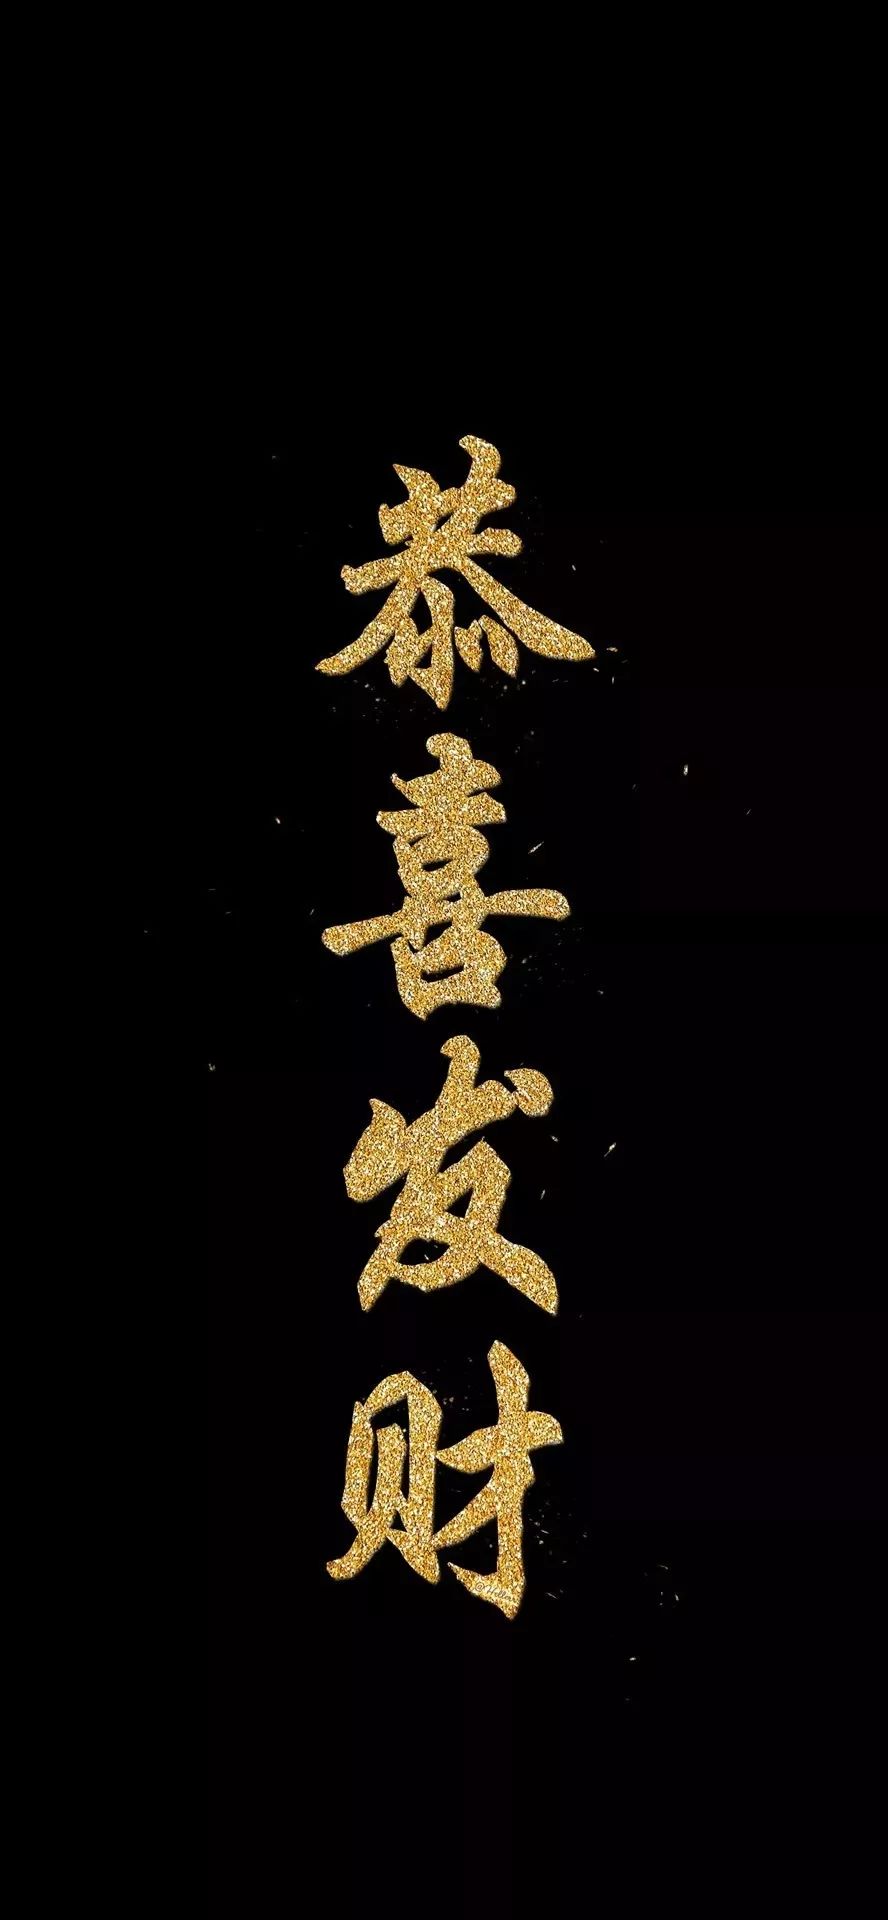 恭喜发财